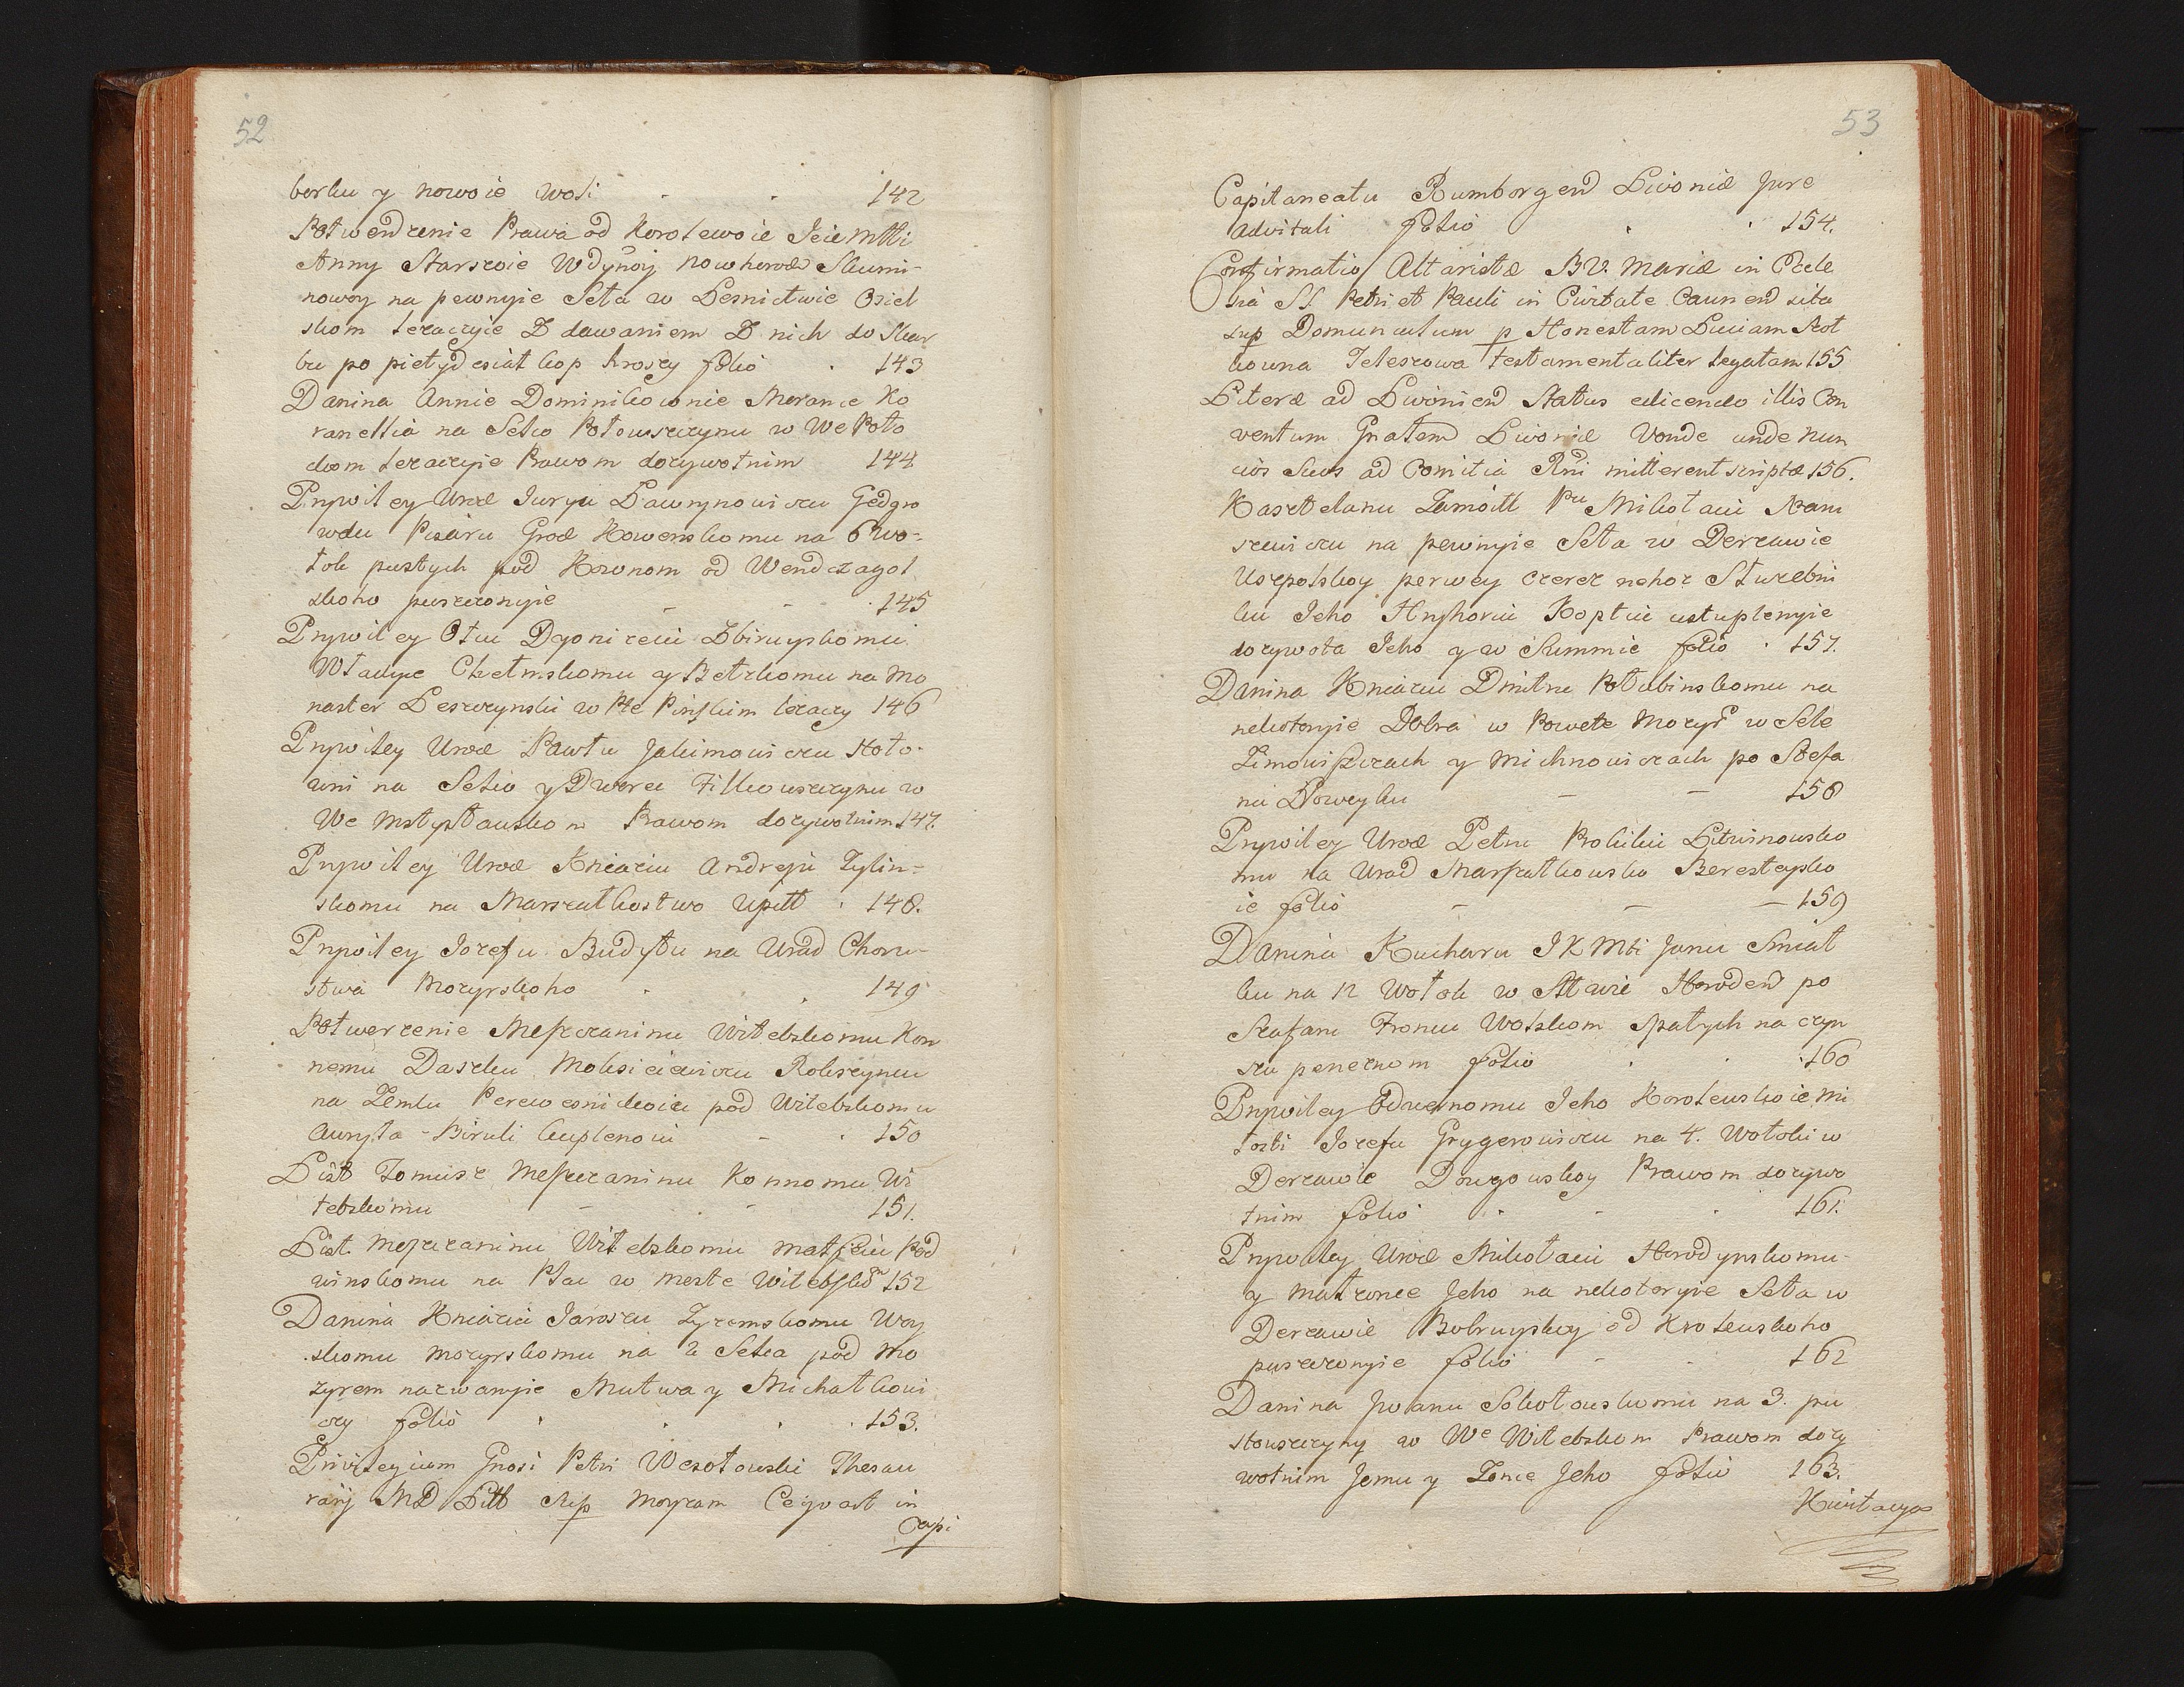 52
borku y nowoie woli 142
Potwerdzenie Prawa od Korolewoie Jeie Mtti
Anny Starszoie Wdynoy nowhorod Skumi-
nowoy na pewnyie Seła w Lesnictwie Osiel
skom leraczyie Z dawaniem Z nich do Skar
bu po pietydesiat kop hroszy folio 143
Danina Annie Dominikownie Morawie Ko
ranellia na Seło Połowszczynu w We Poło
ckom leraczyie Prawom dożywotnim 144
Prywiley Urod Juryu Ławrynowiczu Gedgo
wdu Pisaru Grod Kowenskomu na 6 wo-
łok pustych pod Kownom od Wendziagol
skoho puszczonyie 145
Prywiley Otcu Dyonizeiu Zbiruyskomu
Władyce Chełmskomu y Betzkomu na Mo
naster Leszczynski w Pte Pinskim lezaczy 146
Prywiley Urod Pawłu Jakimowiczu Hoło-
wni na Seło y Dworec Filkowszczynu w
We Mstysławskom Prawom dożywotnim 147.
Prywiley Urod Kniaziu Andreju Zylin-
skomu na Marszałkostwo Upitt 148.
Prywiley Jozefu Budyłu na Urad Choru-
stwa Mozyrskoho 149
Potwerzenie Meszczaninu Witebskomu Kon
nemu Daszku Moksieiewiczu Rokszyncu
na Zemlu Perewesnickoiu pod Witebskomu
Awryła-Biruli kuplenoiu 150
List Tomusz Meszczaninu Konnomu Wi
tebskomu 151.
List Meszczaninu Witebskomu Matfeiu Pod
winskomu na Plac w meste Witebskom 152
Danina Kniaziu Jaroszu Zyzemskomu Woy
skomu mozyrskomu na 2 Selca pod Mo
zyrem nazwanyie Mutwa y Michałkowi
czy folio 153.
Privilegium Gnosi Petri Wesołowski Thesau
rarij M D Litt sup Moyzam Ceywast in
Capi
53
Capitaneatu Rumborgen Livoniæ Jure
advitali folio 154.
Confirmatio Altaristæ B V. Mariæ in Eccle
sia SS. Petri et Pauli in Civitate Caunen sita
sup Domunculum p Honestam Luciam Kot
kowna Teleszowa testamentaliter legatam 155
Literæ ad Livonien Status edicendo illis Con
ventum Gnalem Livoniæ Vonde unde Nun
cios Suos ad Comitia Rni mitterent scriptæ 156.
Kasztelanu Zamoitt Pu Mikołaiu Nam
szewiczu na pewnyie Seła w Derzawie
Uszpolskoy perwey czerez nehoz Słuzebni
ku Jeho Hryhoriu Koptiu ustuplenyie
dożywota Jeho y w Summie folio 157.
Danina Kniaziu Dmitru Połubinskomu na
nekotoryie Dobra w Powete Mozyr w Sele
Limowiszczach y Michnowiczach po Stefa
nu Loweyku 158
Prywiley Urod Petru Rokiku Litwinowsko
mu na Urad Marszałkowsko Beresteysko
ie folio 159
Danina Kucharu J K Mti Janu Smiał
ku na 12 Wołok w Sttwie Horoden po
Szafaru Froncu Wolskom spałych na czyn
szu penеznom folio 160
Prywiley Odwernomu Jeho Korolewskoie Mi
losti Jozefu Grygorowiczu na 4. Wołoki w
Derzawie Dougowskoy Prawom dozywo
tnim folio 161.
Prywiley Urod Mikołaiu Horodynskomu
y Małzonce Jeho na nekotoryie Seła w
Derzawie Bobruyskoy od Krolewskoho
puszczonyie folio 162
Danina Jwanu Sokołowskomu na 3. pu
stowszczyny w We Witebskom Prawom dozy
wotnim Jemu y Zonie Jeho folio 163.
Kwitacya